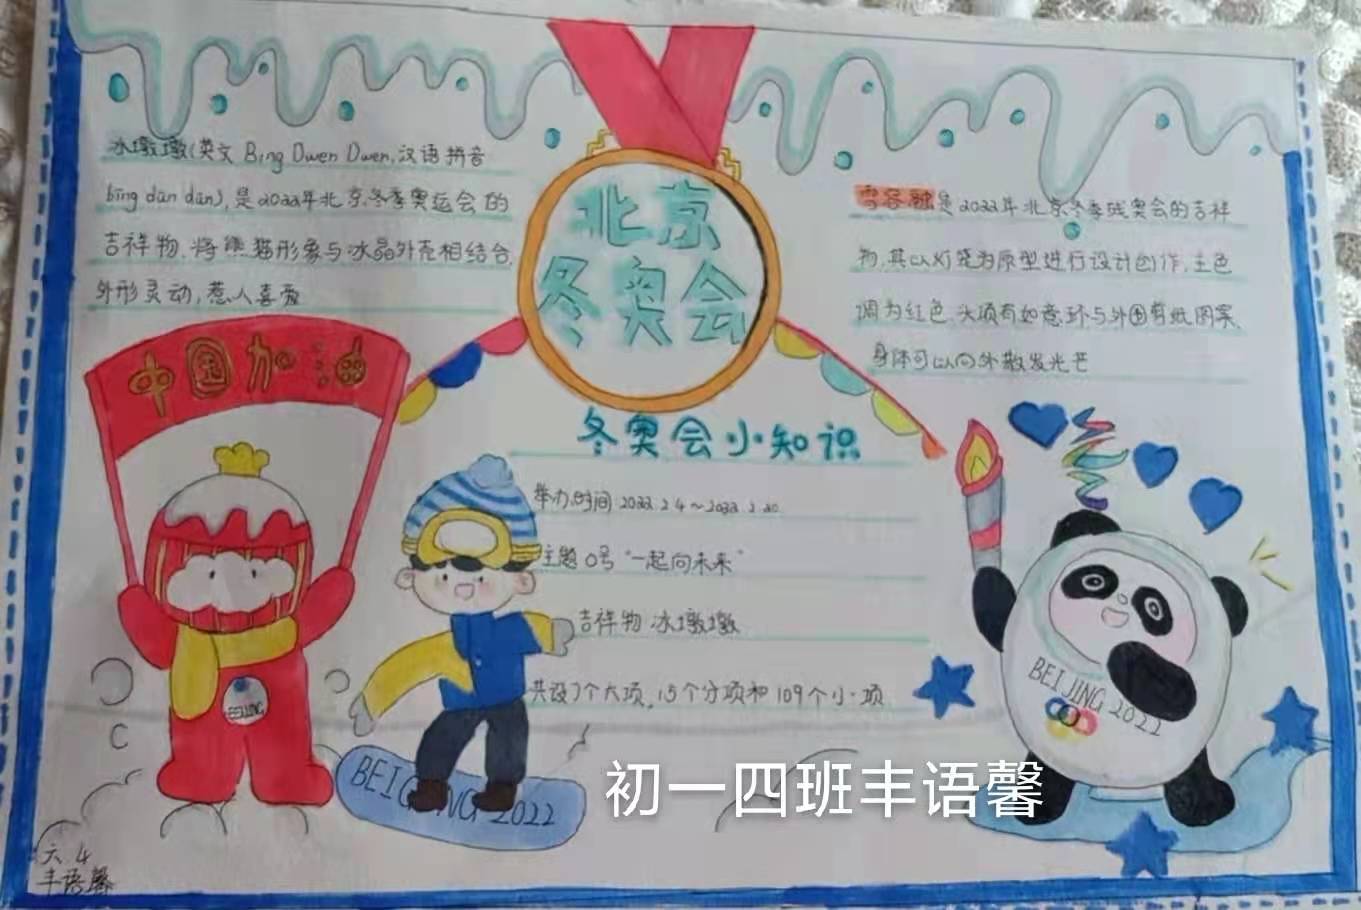 北京
冬奥会
冰墩墩(英文 Bing Dwen Dwen,汉语拼音
bīng dūn dūn),是2022年北京冬季奥运会的
吉祥物.将熊猫形象与冰晶外壳相结合,
外形灵动,惹人喜爱
雪容融是2022年北京冬季残奥会的吉祥
物,其以灯笼为原型进行设计创作,主色
调为红色,头顶有如意环与外围剪纸图案
身体可以向外散发光芒
中国加油
冬奥会小知识
举办时间 2022.2.4~2022.2.20
主题口号“一起向未来”
吉祥物 冰墩墩
共设7个大项,15个分项和109个小项
BEIJING
BEIJING 2022
BEIJING 2022
初一四班丰语馨
六.4
丰语馨